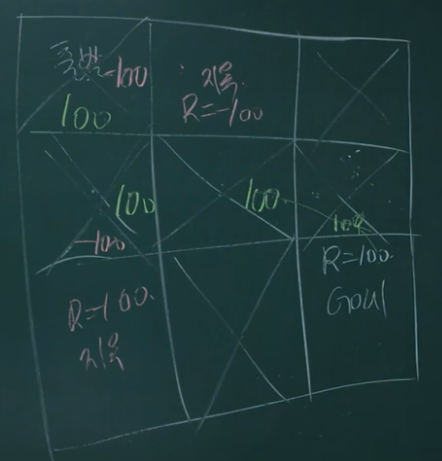 출발 -100
100
지옥
R=-100
100
-100
100
100
R=-100.
지옥
R=100.
Goal